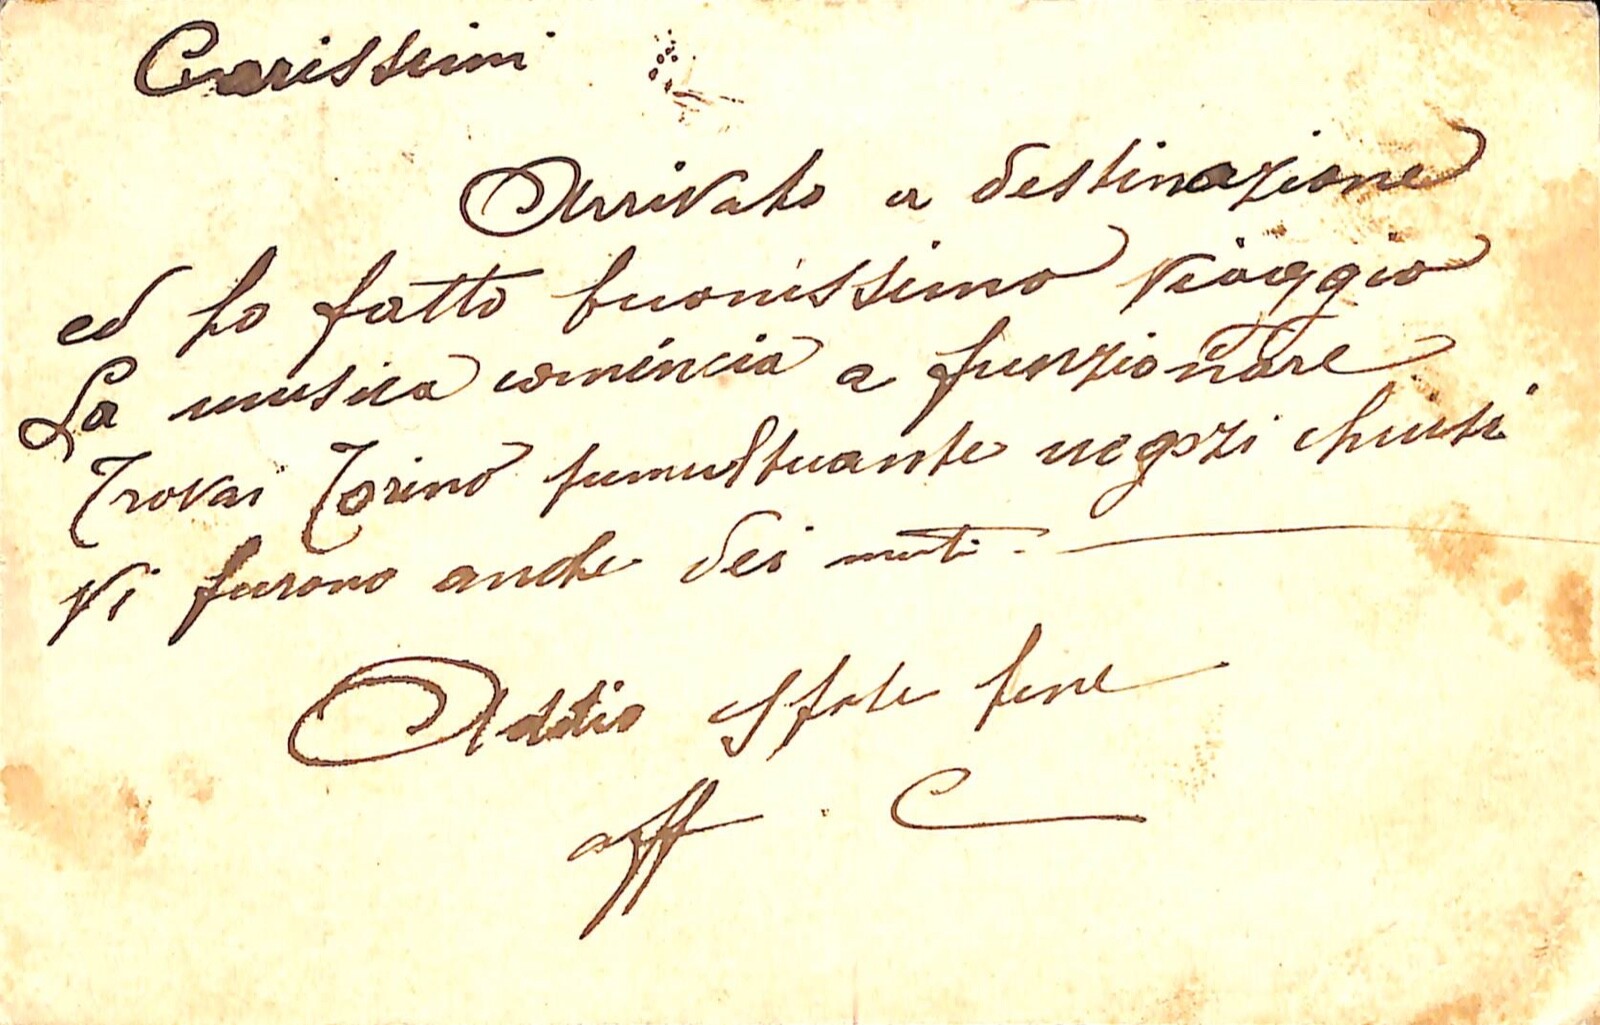 Carissimi
Arrivato a destinazione
ed ho fatto buonissimo viaggio
La musica comincia a funzionare
Trovai Torino tumultuante negozi chiusi
Vi furono anche dei morti.
Addio State bene
aff. C